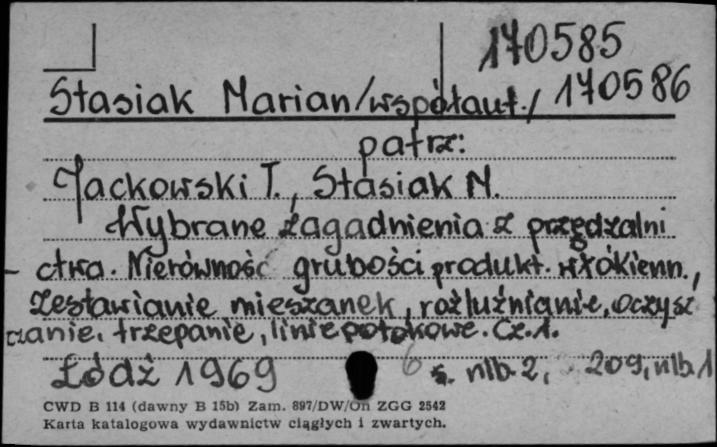 170585
Stasiak Marian /współaut./ 170586
patrz:
Jackowski T., Stasiak M.
Wybrane zagadnienia z przędzalni
ctwa. Nierówność grubości produkt. włókienn.,
Zestawianie mieszanek, rozluźnianie, oczysz
czanie, trzepanie, linie potokowe. Cz. 1.
Łódź 1969 s. nlb. 2, 209, nlb. 1
CWD B 114 (dawny B 15b) Zam. 897/DW/On ZGG 2542
Karta katalogowa wydawnictw ciągłych i zwartych.